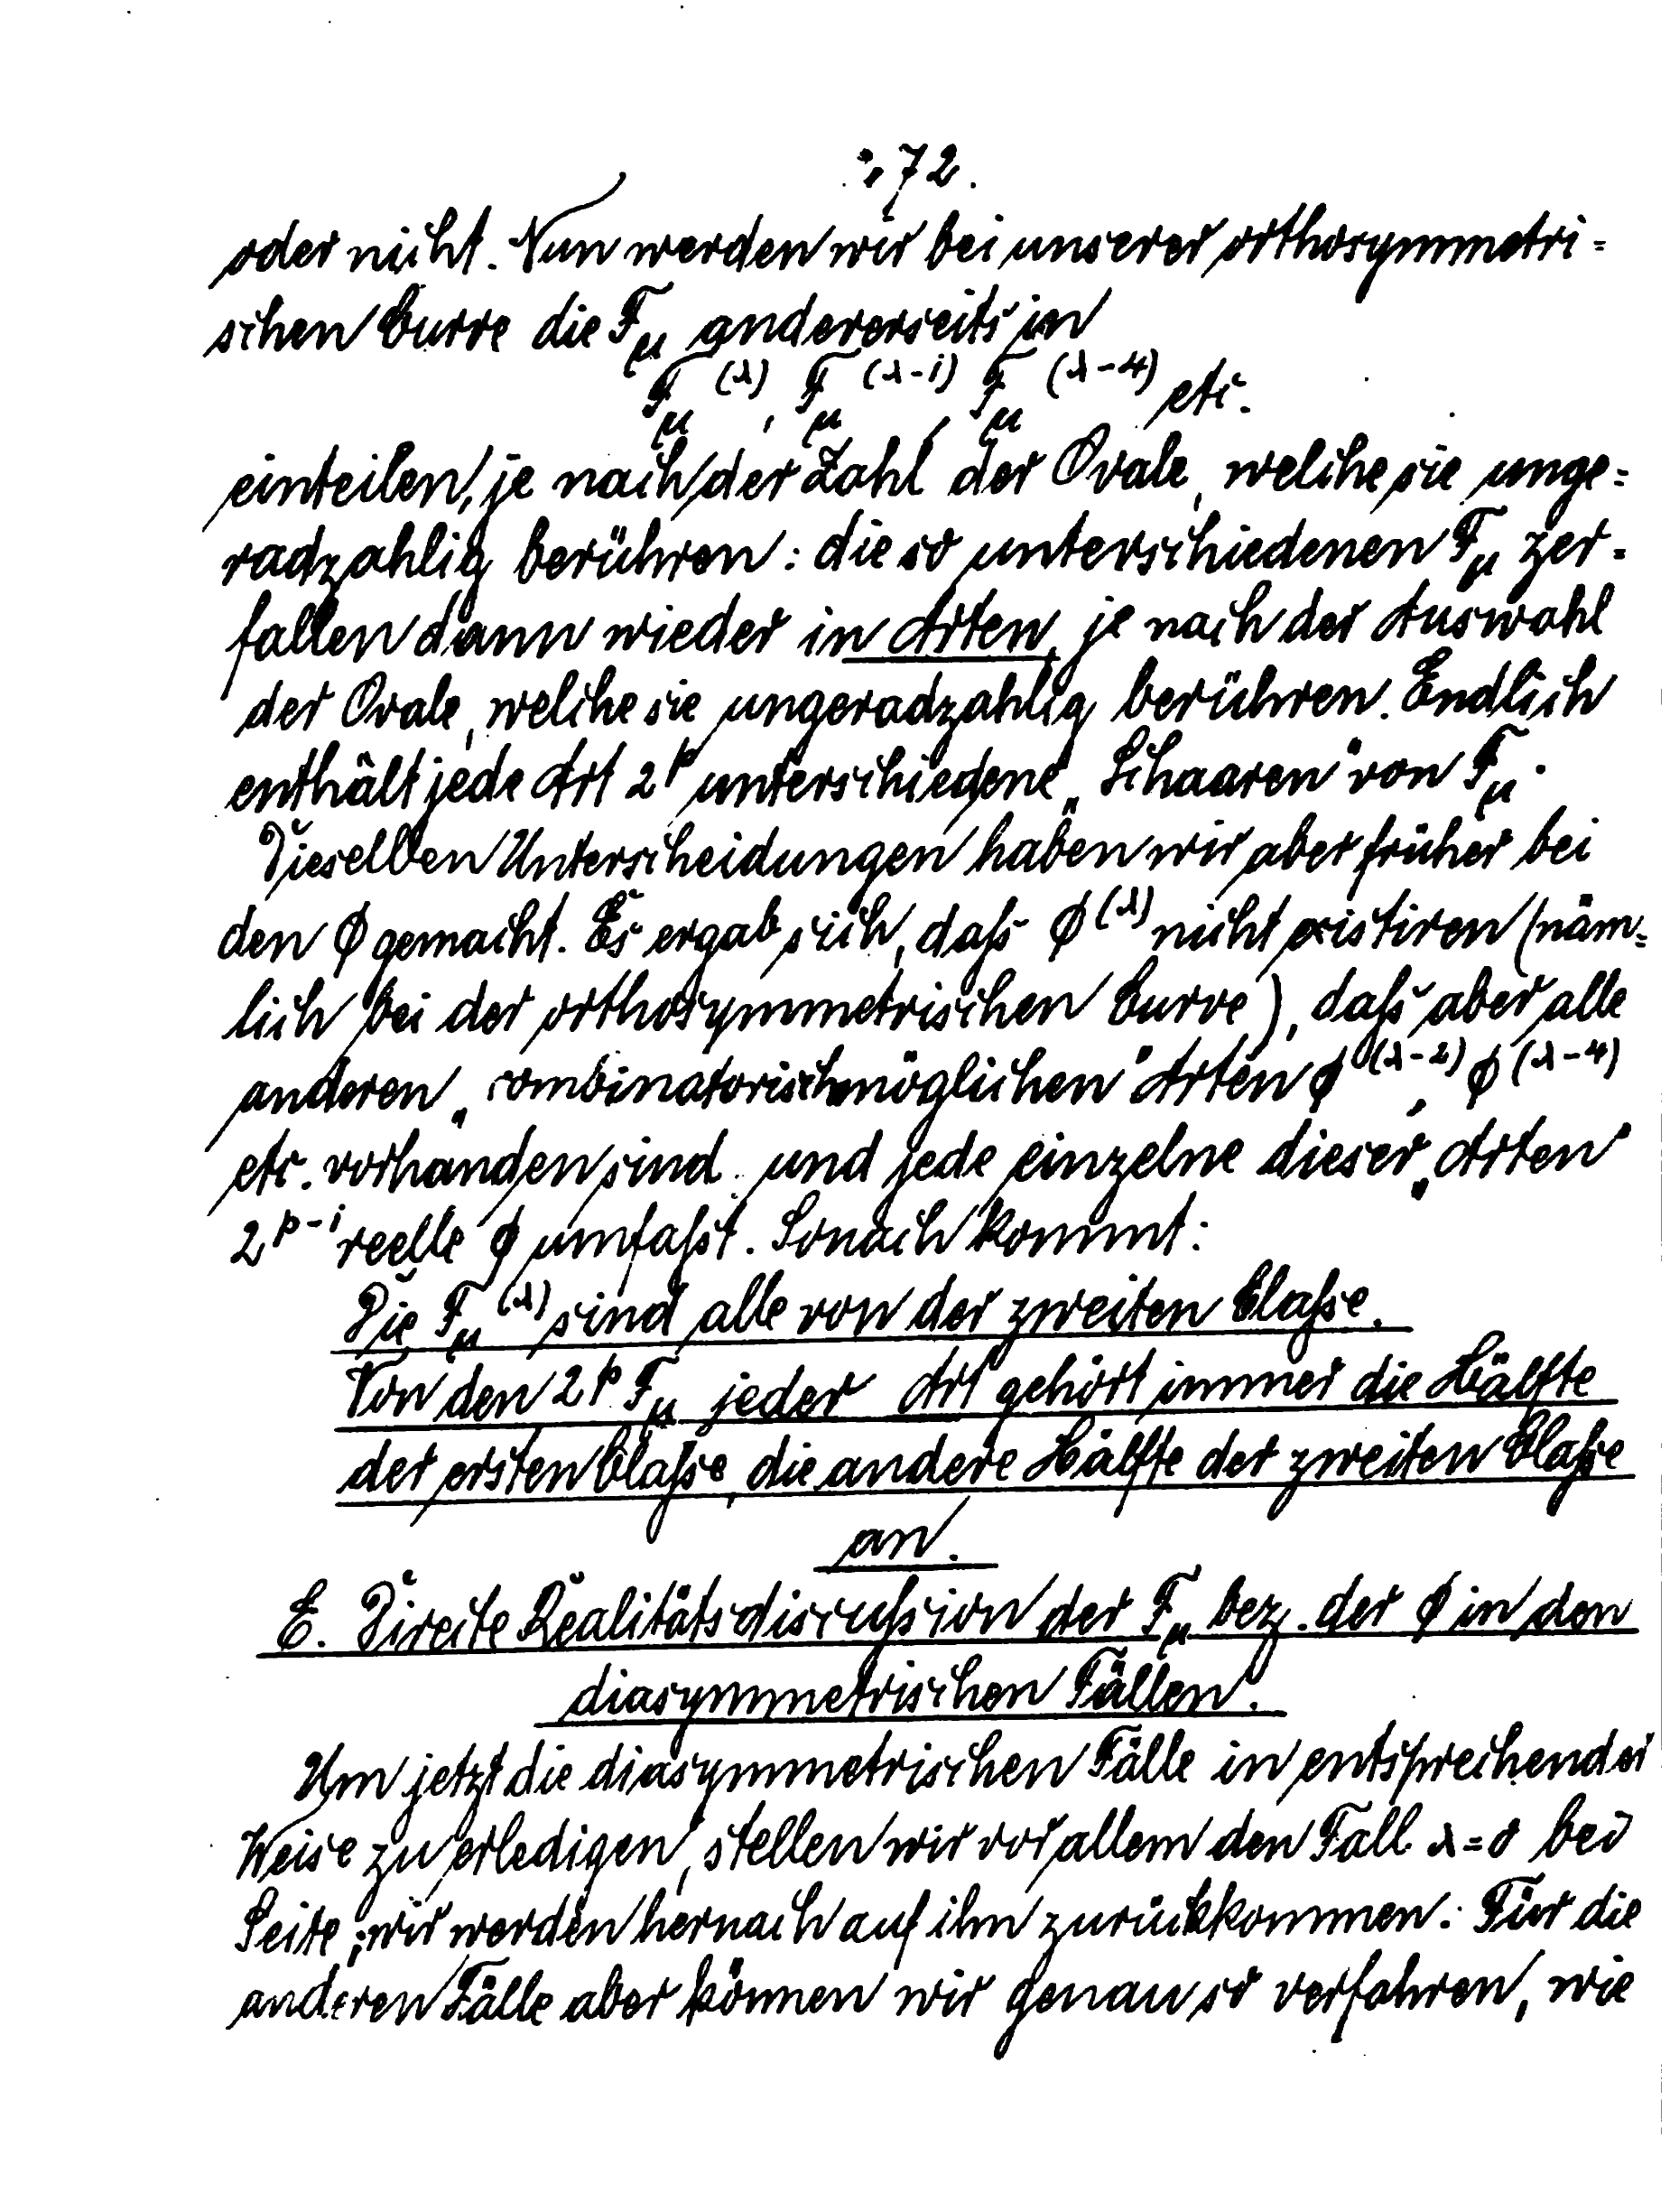 72.
oder nicht. Nun werden wir bei unserer orthosymmetri=
schen Curve die F_μ andererseits in
F_μ^(λ), F_μ^(λ-1), F_μ^(λ-4) etc.
einteilen, je nach der Zahl der Ovale, welche sie unge=
radzahlig berühren: die so unterschiedenen F_μ zer=
fallen dann wieder in Arten, je nach der Auswahl
der Ovale, welche sie ungeradzahlig berühren. Endlich
enthält jede Art 2^p unterschiedene „Schaaren“ von F_μ.
Dieselben Unterscheidungen haben wir aber früher bei
den ϕ gemacht. Es ergab sich, daß ϕ^(λ) nicht existiren (näm=
lich bei der orthosymmetrischen Curve), daß aber alle
anderen „combinatorisch möglichen“ Arten ϕ^(λ-2), ϕ^(λ-4)
etc. vorhanden sind und jede einzelne dieser „Arten“
2^p-1 reelle ϕ umfaßt. Sonach kommt:
Die F_μ^(λ) sind alle von der zweiten Claße.
Von den 2^p F_μ jeder Art gehört immer die Hälfte
der ersten Claße, die andere Hälfte der zweiten Claße
an.
E. Directe Realitätsdiscußion der F_μ bez. der ϕ in den
diasymmetrischen Fällen.
Um jetzt die diasymmetrischen Fälle in entsprechender
Weise zu erledigen, stellen wir vor allem den Fall λ=0 bei
Seite; wir werden hernach auf ihn zurückkommen. Für die
anderen Fälle aber können wir genau so verfahren, wie